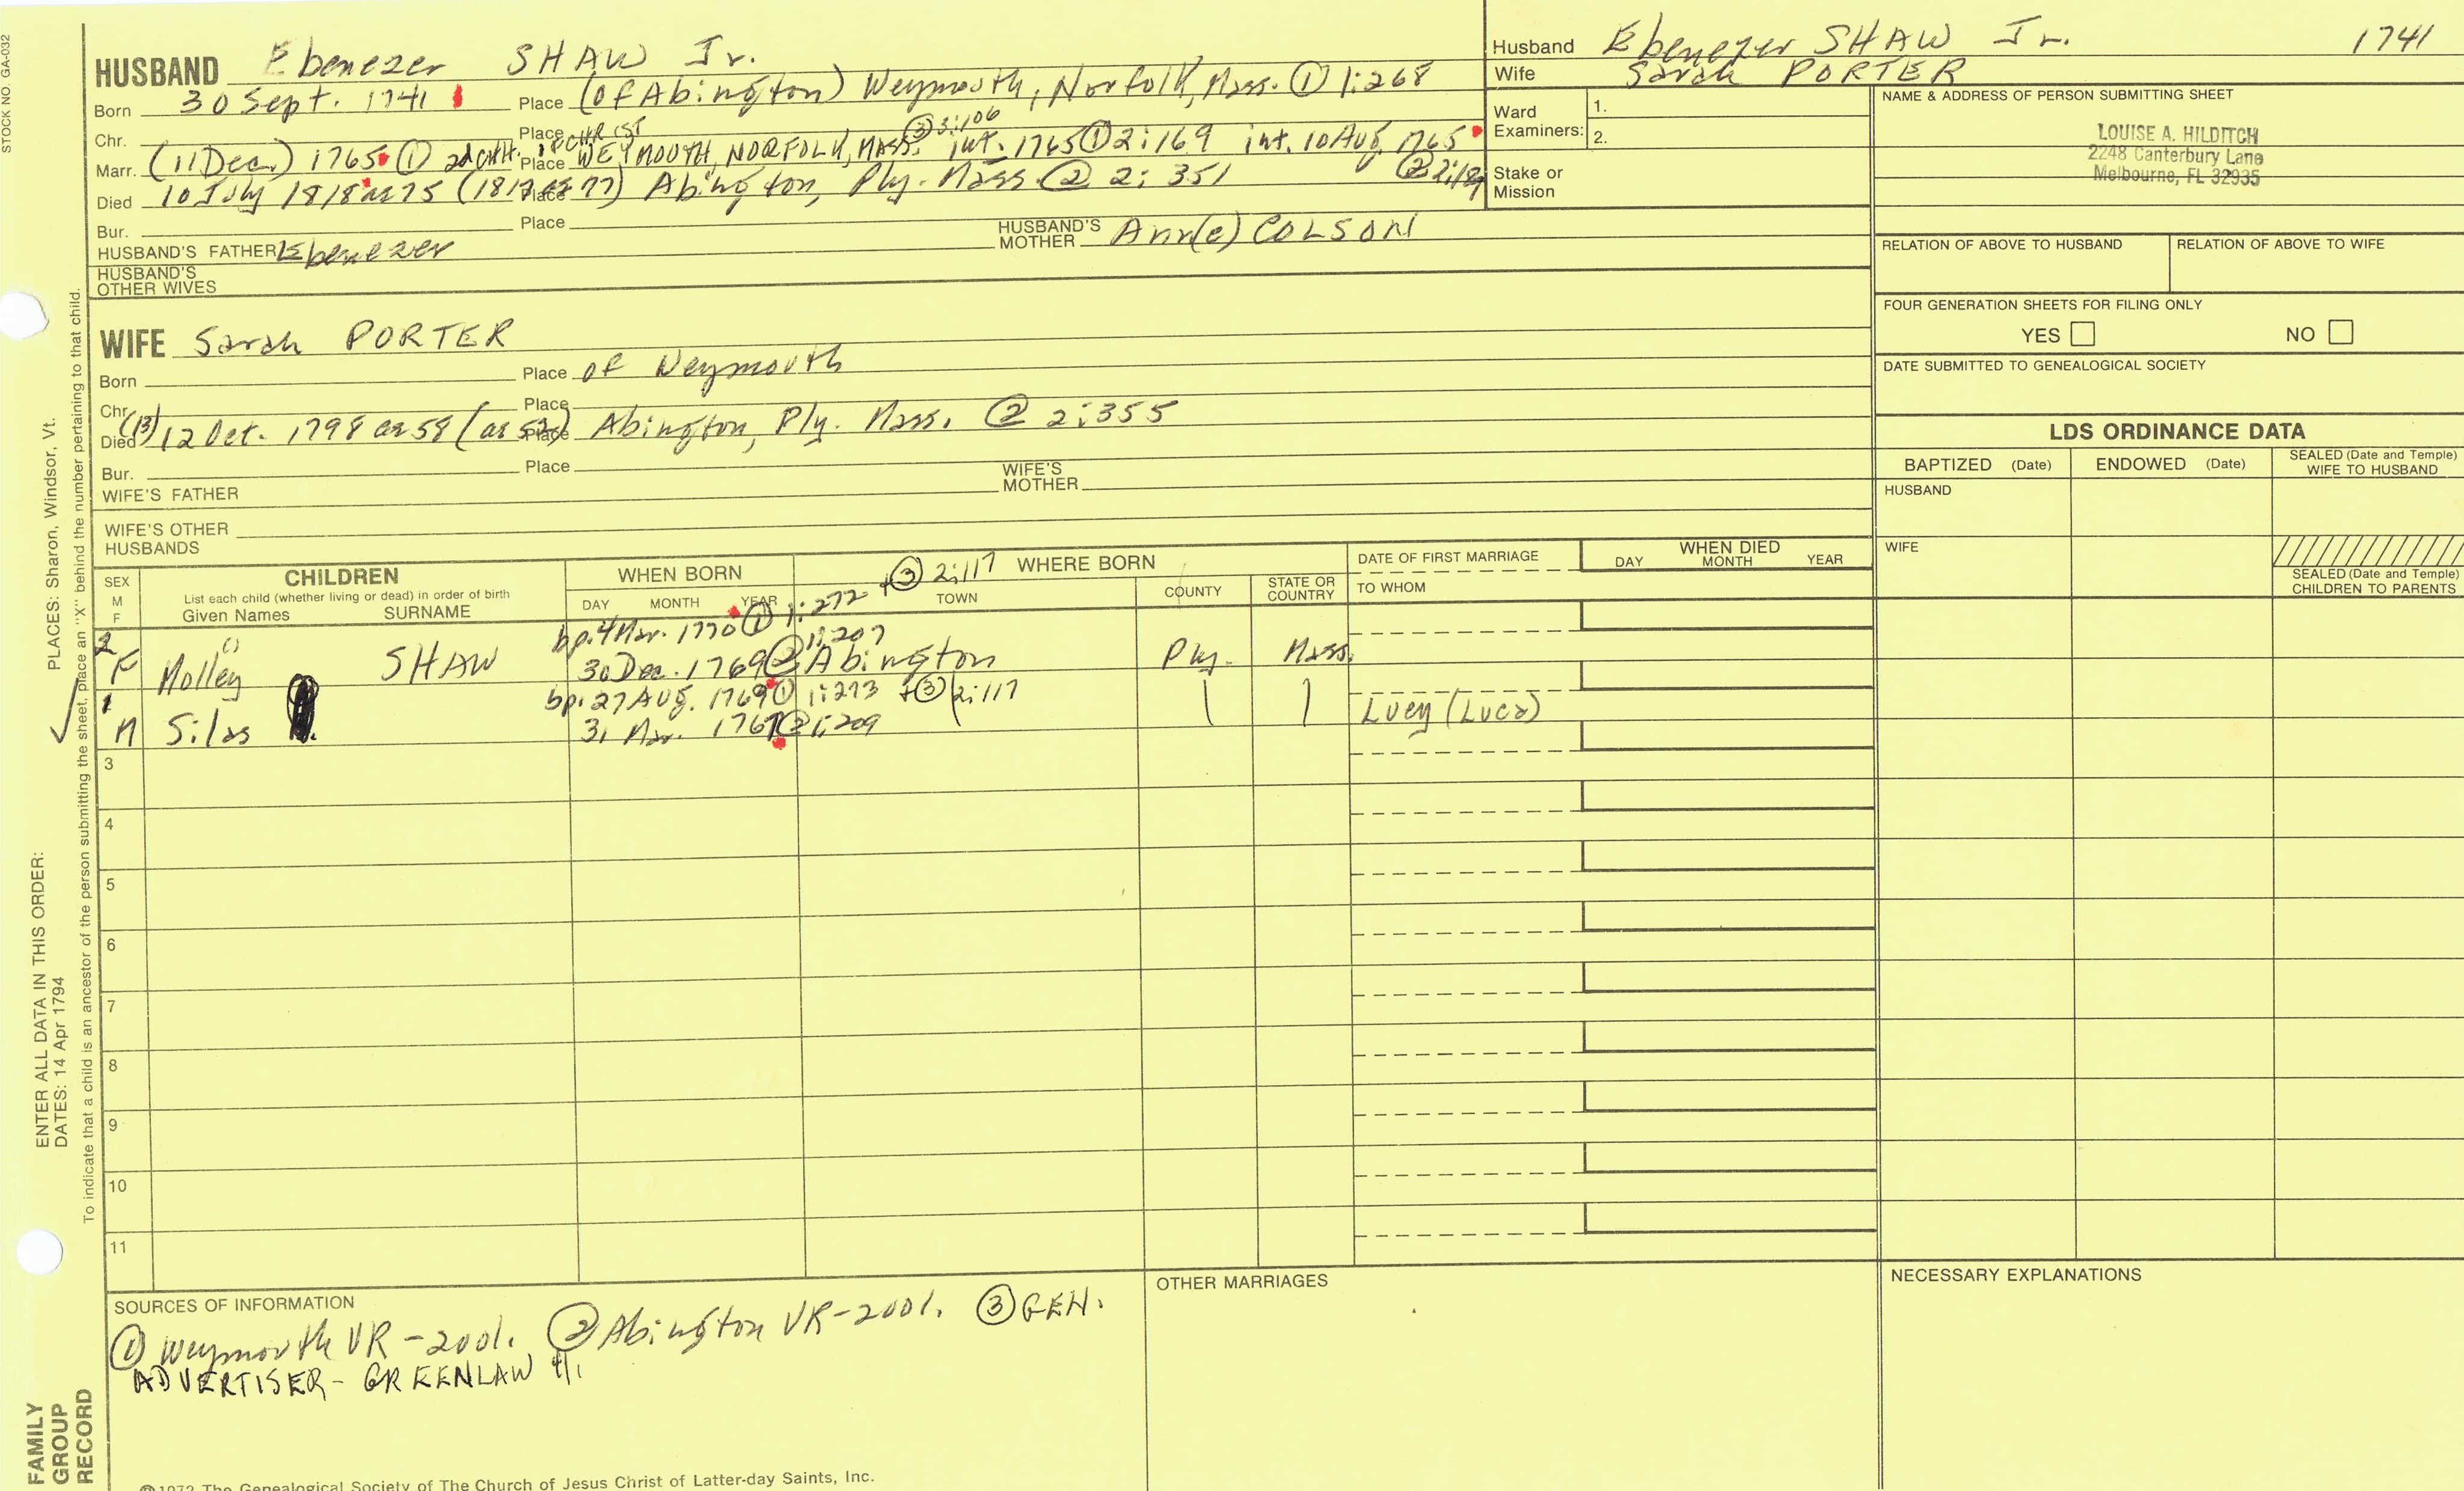 STOCK NO. GA-032
HUSBAND Ebenezer SHAW Jr.
Born 30 Sept. 1741 Place (of Abington) Weymouth, Norfolk, Mass. ① 1:268
Chr. Place
Marr. (11 Dec.) 1765 ① 2d CHH. Place WEYMOUTH, NORFOLK, MASS. ③ 3:106 int. 1765 ① 2:169 int. 10 Aug. 1765
Died 10 July 1818 ae 75 (1817 ae 77) Place Abington, Ply. Mass ② 2:351
Bur. Place
HUSBAND'S FATHER Ebenezer HUSBAND'S MOTHER Ann(e) COLSON
HUSBAND'S OTHER WIVES
WIFE Sarah PORTER
Born Place of Weymouth
Chr. Place
Died (13) 12 Oct. 1798 ae 58 (ae 52) Place Abington, Ply. Mass. ② 2:355
Bur. Place
WIFE'S FATHER WIFE'S MOTHER
WIFE'S OTHER HUSBANDS
Husband Ebenezer SHAW Jr. 1741
Wife Sarah PORTER
Ward Examiners: 1.
2.
Stake or Mission
NAME & ADDRESS OF PERSON SUBMITTING SHEET
LOUISE A. HILDITCH
2248 Canterbury Lane
Melbourne, FL 32935
RELATION OF ABOVE TO HUSBAND RELATION OF ABOVE TO WIFE
FOUR GENERATION SHEETS FOR FILING ONLY
YES NO
DATE SUBMITTED TO GENEALOGICAL SOCIETY
LDS ORDINANCE DATA
BAPTIZED (Date) ENDOWED (Date) SEALED (Date and Temple) WIFE TO HUSBAND
HUSBAND
WIFE
SEALED (Date and Temple) CHILDREN TO PARENTS
SEX M F
CHILDREN
List each child (whether living or dead) in order of birth
Given Names SURNAME
WHEN BORN
DAY MONTH YEAR
WHERE BORN
TOWN COUNTY STATE OR COUNTRY
DATE OF FIRST MARRIAGE
TO WHOM
WHEN DIED
DAY MONTH YEAR
bp. 4 Mar. 1770 ① 1:272 + ③ 2:117
2 F Molley SHAW 30 Dec. 1769 ② 1:207 Abington Ply. Mass.
bp. 27 Aug. 1769 ① 1:273 + ③ 2:117
1 M Silas 31 Mar. 1767 ② 1:209 Lucy (Luca)
3
4
5
6
7
8
9
10
11
SOURCES OF INFORMATION
① Weymouth VR-2001. ② Abington VR-2001. ③ GEN.
ADVERTISER - GREENLAW
OTHER MARRIAGES
NECESSARY EXPLANATIONS
PLACES: Sharon, Windsor, Vt.
ENTER ALL DATA IN THIS ORDER:
DATES: 14 Apr 1794
To indicate that a child is an ancestor of the person submitting the sheet, place an "X" behind the number pertaining to that child.
FAMILY GROUP RECORD
©1972 The Genealogical Society of The Church of Jesus Christ of Latter-day Saints, Inc.